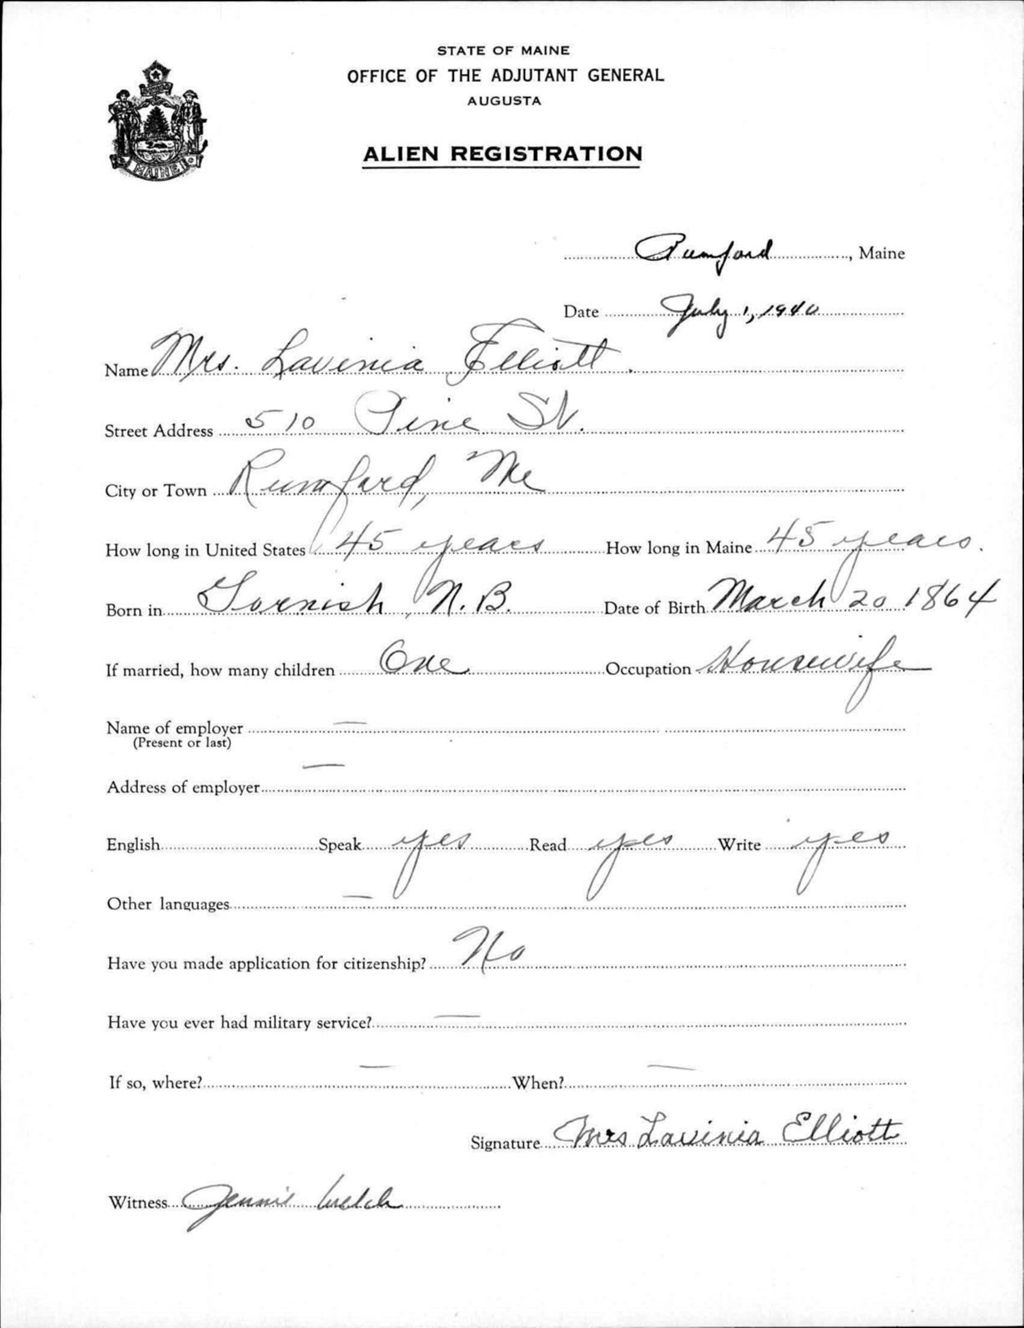 STATE OF MAINE
OFFICE OF THE ADJUTANT GENERAL
AUGUSTA
ALIEN REGISTRATION
MAINE
Rumford, Maine
Date July 1, 1940
Name Mrs. Lavinia Elliott.
Street Address 510 Pine St.
City or Town Rumford, Me
How long in United States 45 years How long in Maine 45 years.
Born in N.B. Date of Birth March 20 1864
If married, how many children One Occupation Housewife
Name of employer —
(Present or last)
Address of employer —
English Speak yes Read yes Write yes
Other languages —
Have you made application for citizenship? No
Have you ever had military service? —
If so, where? — When? —
Signature Mrs Lavinia Elliott
Witness Jennie Welch